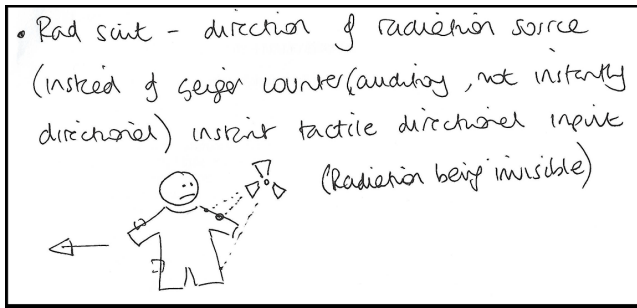 • Rad suit - direction of radiation source
(instead of geiger counter (auditory, not instantly
directional) instant tactile directional input
(Radiation being invisible)